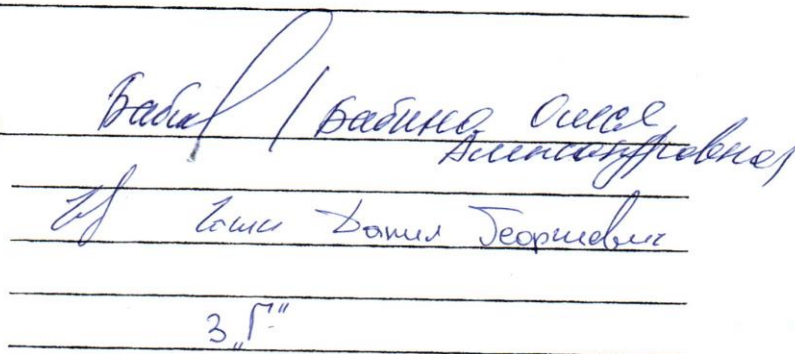 Бабин / Бабина Олеся
Александровна
Данил Георгиевич
3 „Г"